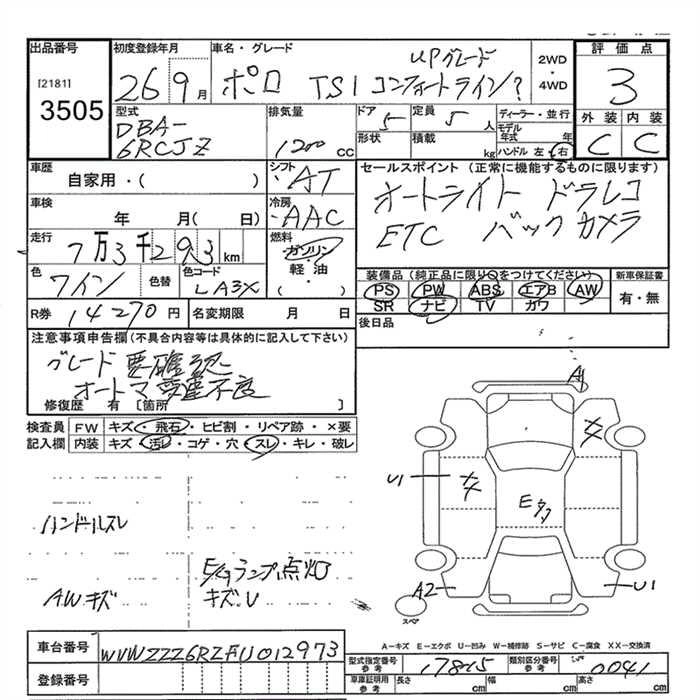 出品番号
[2181]
3505
初度登録年月
26 9月
車名・グレード
UPグレード
ポロ TSI コンフォートライン?
2WD
・
4WD
評価点
3
外装 内装
C C
型式
DBA-
6RCJZ
排気量
1200 cc
ドア 5
定員 5人
形状
積載 kg
ディーラー・並行
モデル年式 年
ハンドル 左・右
車歴
自家用・( )
シフト
・AT
セールスポイント (正常に機能するものに限ります)
オートライト ドラレコ
ETC バックカメラ
車検
年 月( 日)
冷房
・AAC
走行
7万3千293km
燃料
ガソリン
軽・油
・( )
色
ワイン
色替
色コード
LA3X
装備品(純正品に限り○をつけてください)
PS PW ABS エアB AW
SR ナビ TV カワ
新車保証書
有・無
R券 14270円
名変期限 月 日
後日品
注意事項申告欄(不具合内容等は具体的に記入して下さい)
グレード要確認
オートマ変速不良
修復歴 有 [箇所 ]
検査員
記入欄
FW キズ・飛石・ヒビ割・リペア跡・×要
内装 キズ・汚レ・コゲ・穴・スレ・キレ・破レ
ハンドルスレ
AWキズ
E/gランプ点灯
キズ.U
A1
U1
E
A2
U1
スペア
A-キズ E-エクボ U-凹み W-補修跡 S-サビ C-腐食 XX-交換済
車台番号 WVWZZZ6RZFU012973
登録番号
型式指定番号
参考
17815
類別区分番号
参考
0041
車庫証明用
参考
長さ cm 幅 cm 高さ cm